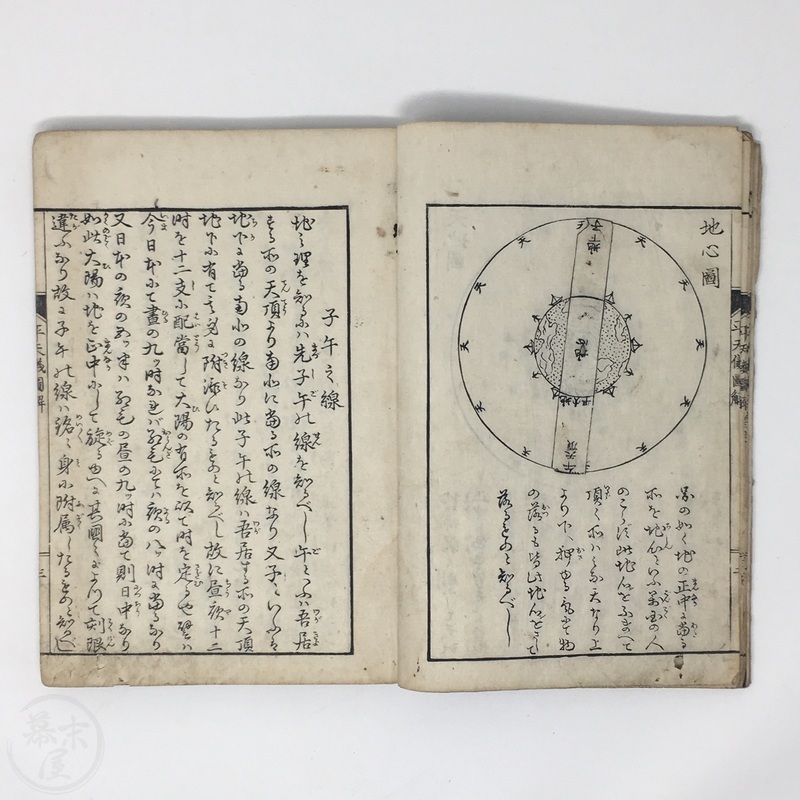 地心圖
図の如く地の正中に當る
所を地心といふ萬国の人
のこらず此地心をふまへて
頂く所ハミな天なり上
より下へ押ゆる気にて物
の落るも皆此地心をさして
落るものと知るべし
子午之線
地之理を知るにハ先子午の線を知るべし午といふハ吾居
する所の天頂より南北に當る所の線なり又子といふハ
地下に當る南北の線なり此子午の線ハ吾居する所の天頂
地下に有て附添ひたるものと知るべし故に昼夜十二
時を十二支に配當して大陽の有所を以て時を定る也譬ハ
今日本にて晝の九ッ時なれバ紅毛にてハ夜の八ッ時に當るなり
又日本の夜の五ッ半ハ紅毛の昼の九ッ時に當て則日中なり
如此大陽ハ地を正中にして旋るゆへに其國々によつて刻限
違ふなり故に子午の線ハ銘々身に附属したるものと知べし
平天儀圖解
三
幕末屋